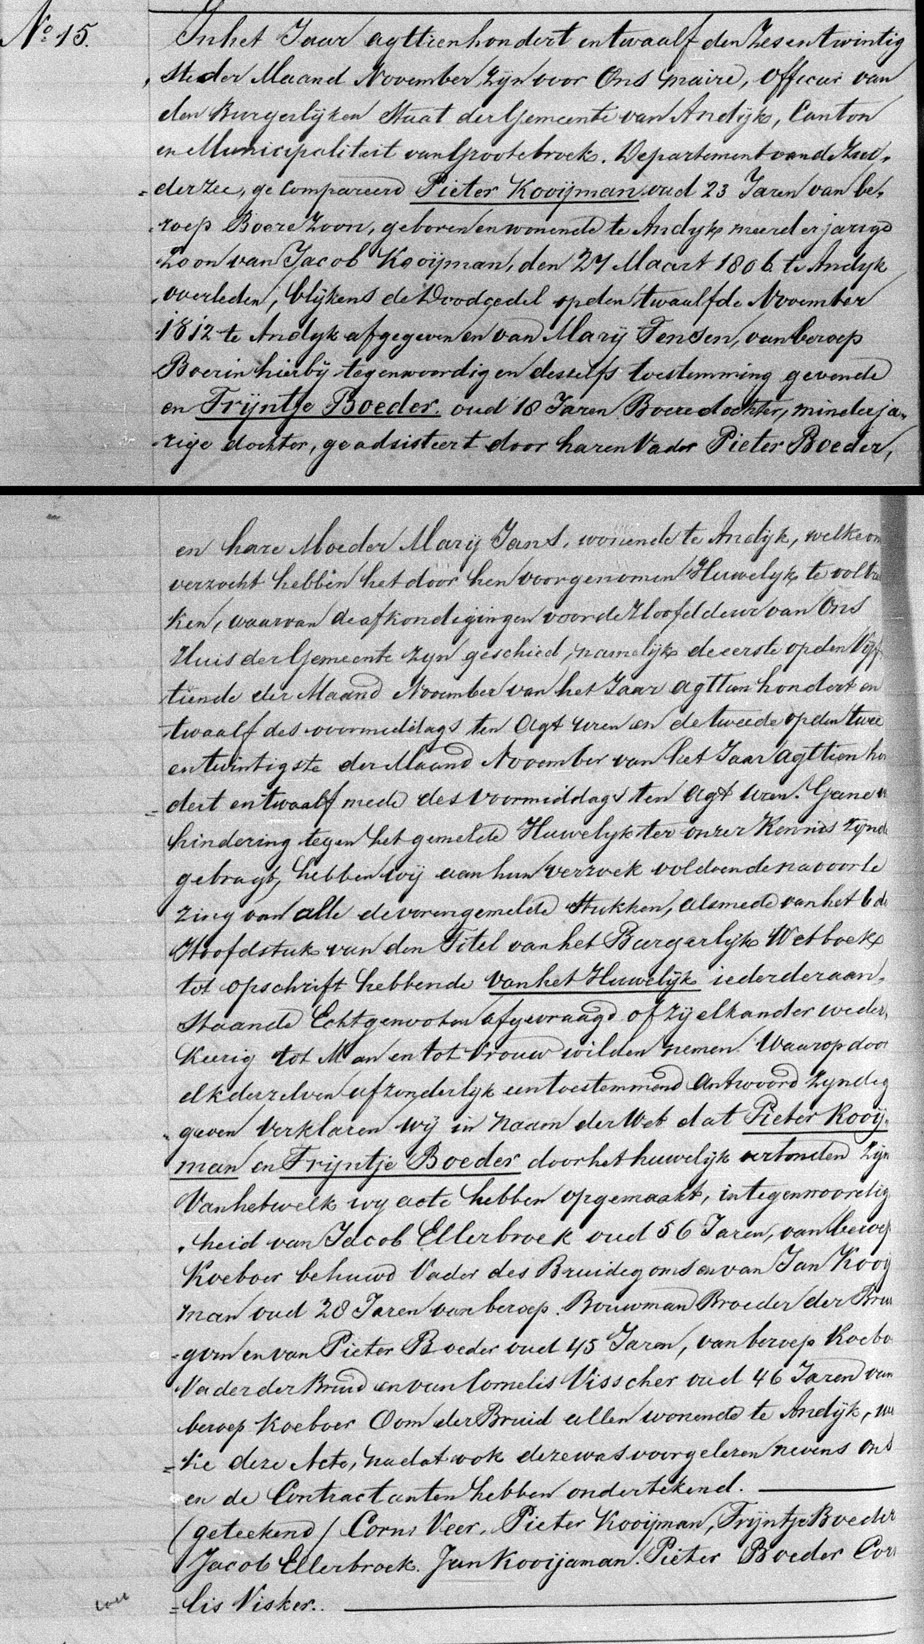 No 15.
In het Jaar agttienhondert en twaalf den Zes en twintig
ste der Maand November zijn voor Ons maire, Officier van
den Burgerlijken Staat der Gemeente van Andijk, Canton
en Municipaliteit van Grootebroek. Departement van de Zuid,
=derzee, gecompareerd Pieter Kooijman oud 23 Jaren van be,
roep Boere Zoon, geboren en wonende te Andijk meerderjarige
Zoon van Jacob Kooijman, den 27 Maart 1806 te Andijk
overleden, blijkens de Doodcedel op den twaalfde November
1812 te Andijk afgegeven en van Marij Jensen, van beroep
Boerin hierbij tegenwoordig en deszelfs toestemming gevende
en Trijntje Boeder. oud 18 Jaren Boere dochter, minderja,
rige dochter, geadsisteert door haren Vader Pieter Boeder,
en hare Moeder Marij Jans, wonende te Andijk, welke on
verzocht hebben het door hen voorgenomen Huwelijk te voltre
ken, waarvan de afkondigingen voor de Hoofddeur van Ons
Huis der Gemeente zijn geschied, namelijk de eerste op den Vijf
tiende der Maand November van het Jaar agttien hondert en
twaalf des voormiddags ten Agt uren en de tweede op den twee
en twintigste der Maand November van het Jaar Agttien hon
dert en twaalf mede des voormiddags ten Agt uren. Gene v
hindering tegen het gemelde Huwelijk ter onzer Kennis zijnde
gebragt, hebben wij aan hun verzoek voldoende na voorle
zing van alle de vorengemelde Stukken, alsmede van het 6 de
Hoofdstuk van den Titel van het Burgerlijk Wetboek
tot opschrift hebbende van het Huwelijk ieder der aan,
Staande Echtgenooten afgevraagd of zij elkander weder,
keerig tot Man en tot Vrouw wilden nemen. Waarop door
elk derzelven afzonderlijk een toestemmend Antwoord zynde g
geven Verklaren Wij in naam der Wet dat Pieter Kooij,
man en Trijntje Boeder door het huwelijk verbonden zijn
Van hetwelk wij acte hebben opgemaakt, in tegenwoordig
heid van Jacob Ellerbroek oud 56 Jaren, van beroep
Koeboer behuwd Vader des Bruidegoms en van Jan Kooij
man oud 28 Jaren van beroep. Bouwman Broeder der Brui
gom en van Pieter Boeder oud 45 Jaren, van beroep Koebo
Vader der Bruid en van Cornelis Visscher oud 46 Jaren van
beroep Koeboer Oom der Bruid allen wonende te Andijk, we
=ke deze Acte, nadat ook deze was voorgelezen nevens ons
en de Contractanten hebben ondertekend.
(geteekend) Corns Veer. Pieter Kooijman, Trijntje Boeder
Jacob Ellerbroek. Jan Kooijaman. Pieter Boeder Cor
=lis Visker.